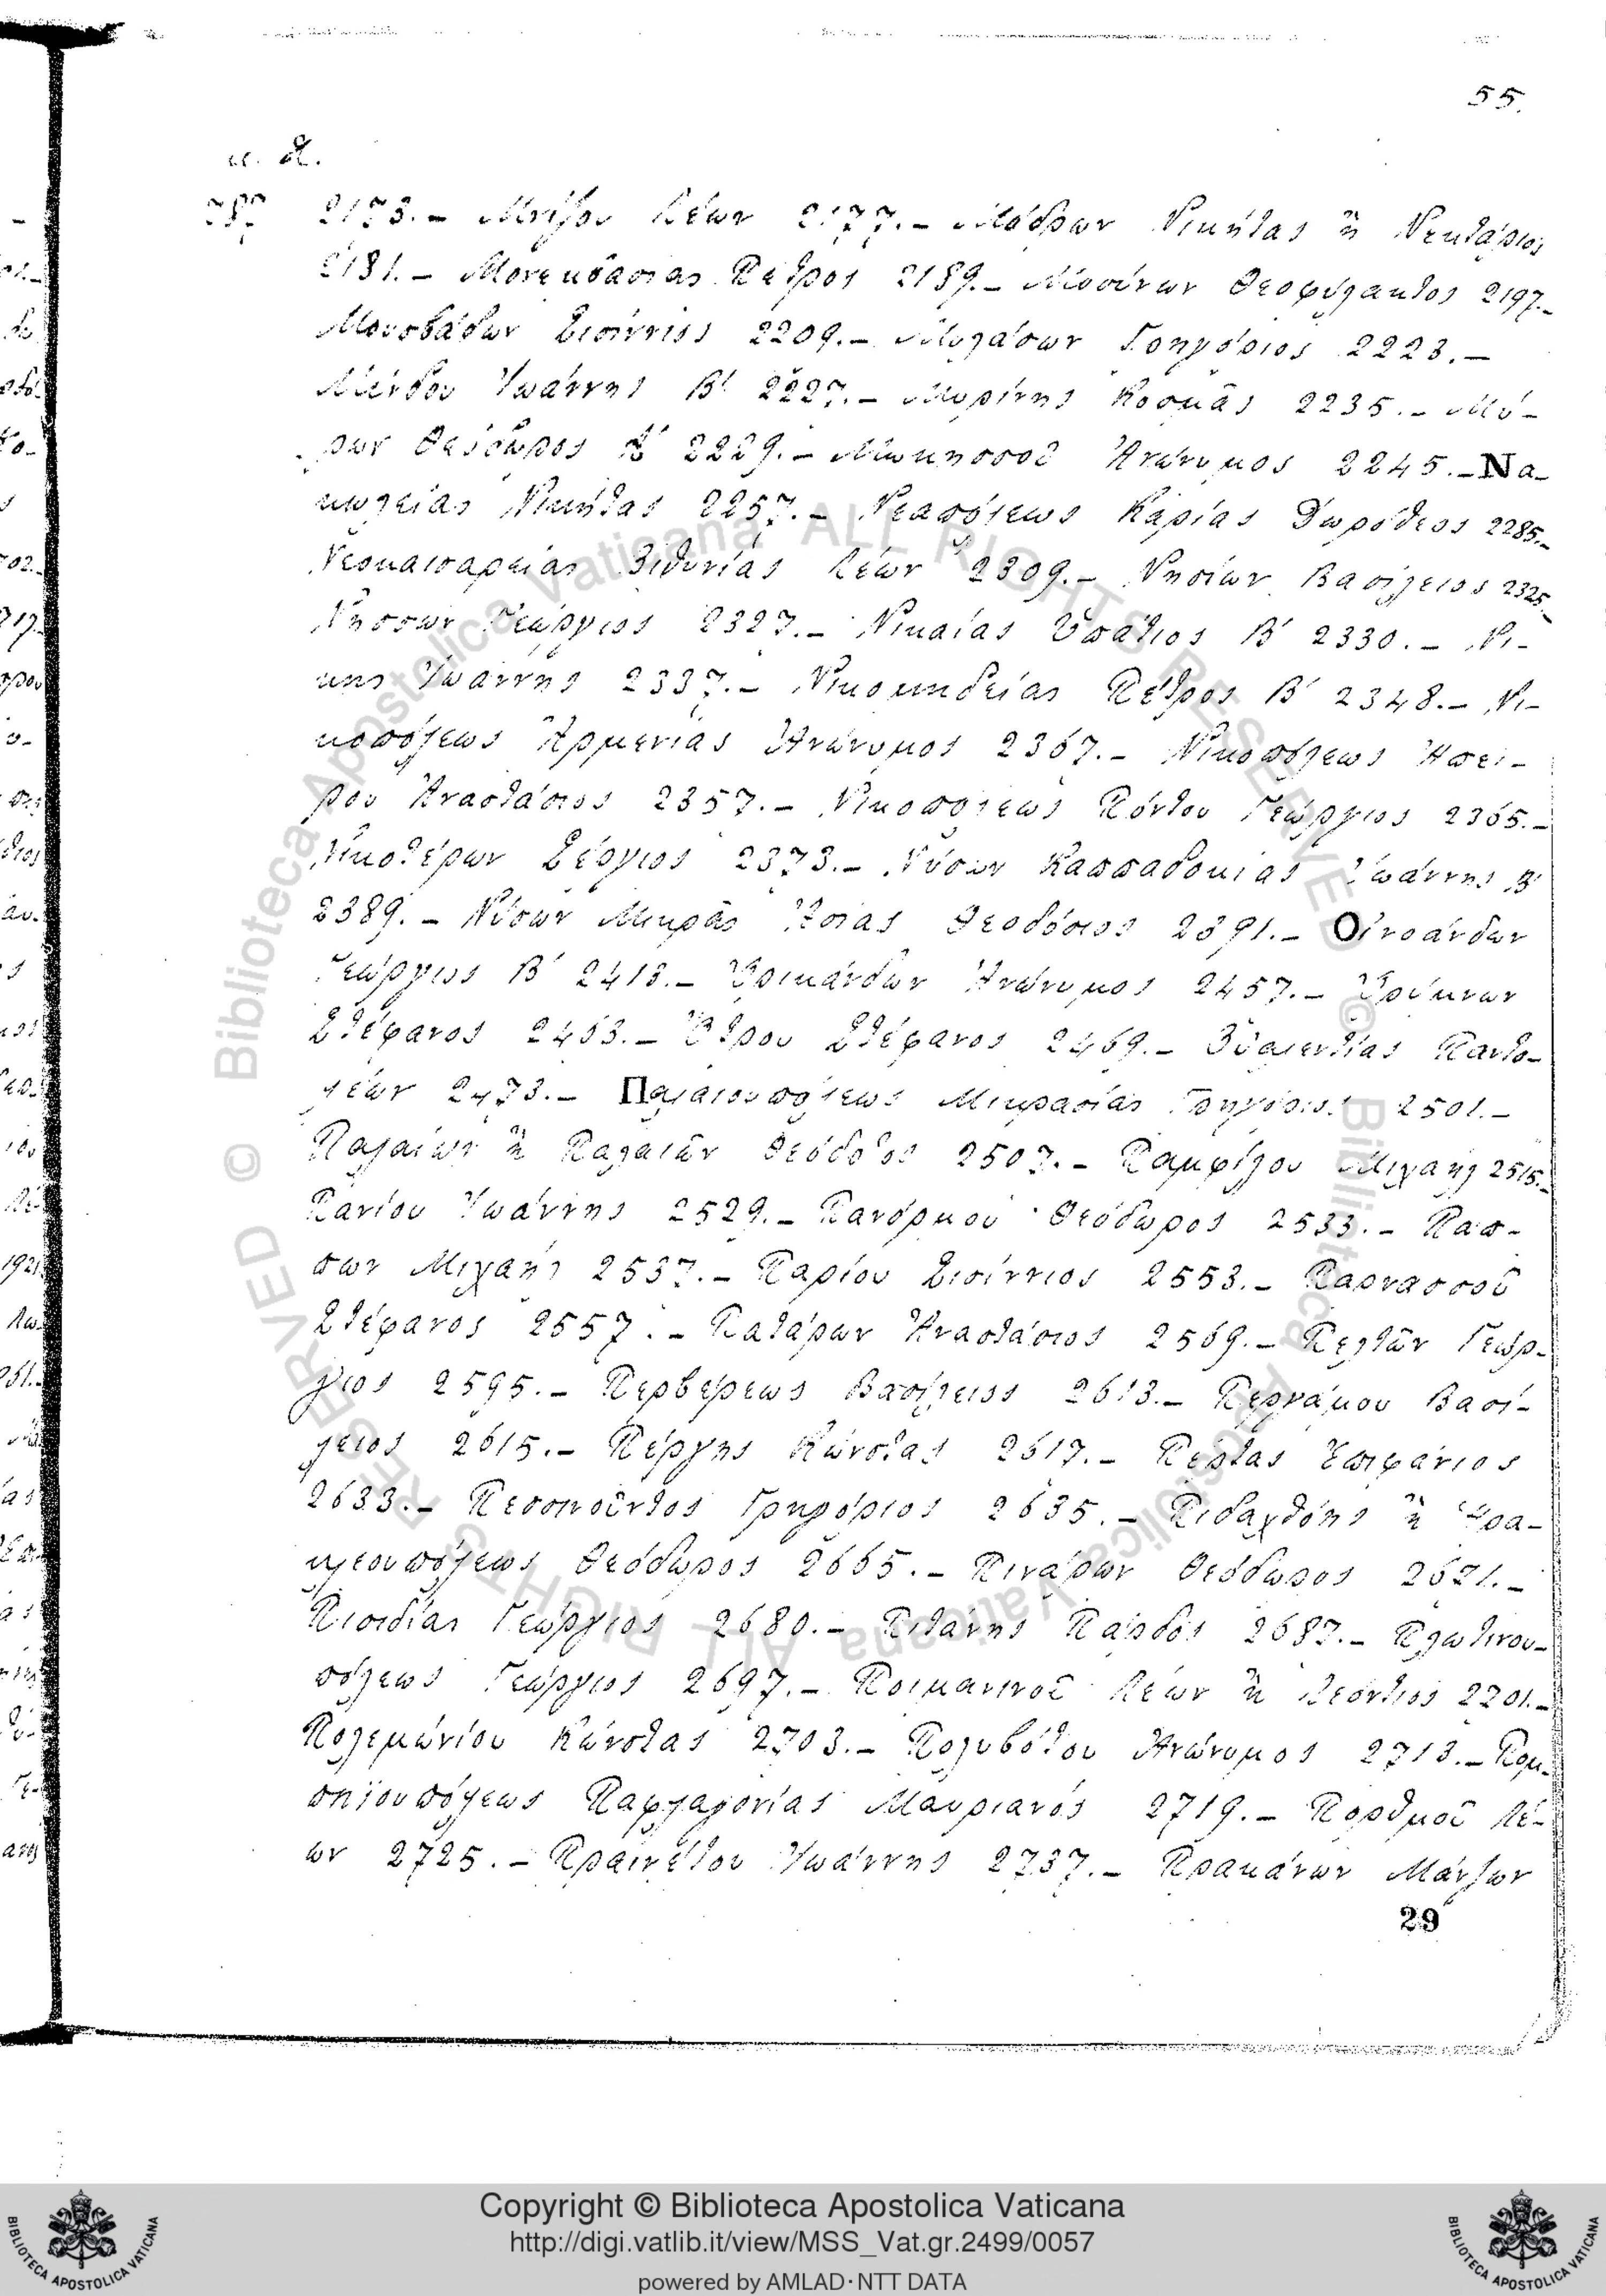 55.
μ. Χ.
787 2173.– Μνίζου Λέων 2177.– Μόδρων Νικήτας ἢ Νεκτάριος
2181.– Μονεμβασίας Πέτρος 2189.– Μοσύνων Θεοφύλακτος 2197.–
Μουσβάδων Σισίννιος 2209.– Μυλάσων Γρηγόριος 2223.–
Μύνδου Ἰωάννης Β΄ 2227.– Μυρίνης Κοσμᾶς 2235.– Μύ-
ρων Θεόδωρος 2229.– Μωκησσοῦ Ἀνώνυμος 2245.– Να-
κωλείας Νικήτας 2257.– Νεαπόλεως Καρίας Δωρόθεος 2285.–
Νεοκαισαρείας Βιθυνίας Λέων 2309.– Νησίων Βασίλειος 2325.–
Νήσσων Γεώργιος 2327.– Νικαίας Ὑπάτιος Β΄ 2330.– Νί-
κης Ἰωάννης 2337.– Νικομηδείας Πέτρος Β΄ 2348.– Νι-
κοπόλεως Ἀρμενίας Ἀνώνυμος 2367.– Νικοπόλεως Ἠπεί-
ρου Ἀναστάσιος 2357.– Νικοπόλεως Πόντου Γεώργιος 2365.–
Νικοτέρων Σέργιος 2373.– Νύσων Καππαδοκίας Ἰωάννης Β΄
2389.– Νύσων Μικρᾶς Ἀσίας Θεοδόσιος 2391.– Οἰνοάνδων
Γεώργιος Β΄ 2413.– Ὀρικάνδων Ἀνώνυμος 2457.– Ὀρύμνων
Στέφανος 2463.– Ὄτρου Στέφανος 2469.– Οὐαλεντίας Παντο-
λέων 2473.– Παλαιουπόλεως Μικρασίας Γρηγόριος 2501.–
Παλαίων ἢ Παλαιῶν Θεόδοτος 2507.– Παμφίλου Μιχαήλ 2515.–
Πανίου Ἰωάννης 2529.– Πανόρμου Θεόδωρος 2533.– Πάπ-
πων Μιχαήλ 2537.– Παρίου Σισίννιος 2553.– Παρνασσοῦ
Στέφανος 2557.– Πατάρων Ἀναστάσιος 2569.– Πελτῶν Γεώρ-
γιος 2595.– Περβέρεως Βασίλειος 2613.– Περγάμου Βασί-
λειος 2615.– Πέργης Κώνστας 2617.– Πέρτας Ἐπιφάνιος
2633.– Πεσσινοῦντος Γρηγόριος 2635.– Πιδαχθόης ἢ Ἡρα-
κλεουπόλεως Θεόδωρος 2665.– Πινάρων Θεόδωρος 2671.–
Πισιδίας Γεώργιος 2680.– Πιτάνης Πάρδος 2687.– Πλωτινου-
πόλεως Γεώργιος 2697.– Ποιμανινοῦ Λέων ἢ Λεόντιος 2701.–
Πολεμωνίου Κώνστας 2703.– Πολυβότου Ἀνώνυμος 2713.– Πομ-
πηϊουπόλεως Παφλαγονίας Μαυριανός 2719.– Πορθμοῦ Λέ-
ων 2725.– Πραινέτου Ἰωάννης 2737.– Πρακάνων Μάνζων
29
Copyright © Biblioteca Apostolica Vaticana
http://digi.vatlib.it/view/MSS_Vat.gr.2499/0057
powered by AMLAD·NTT DATA